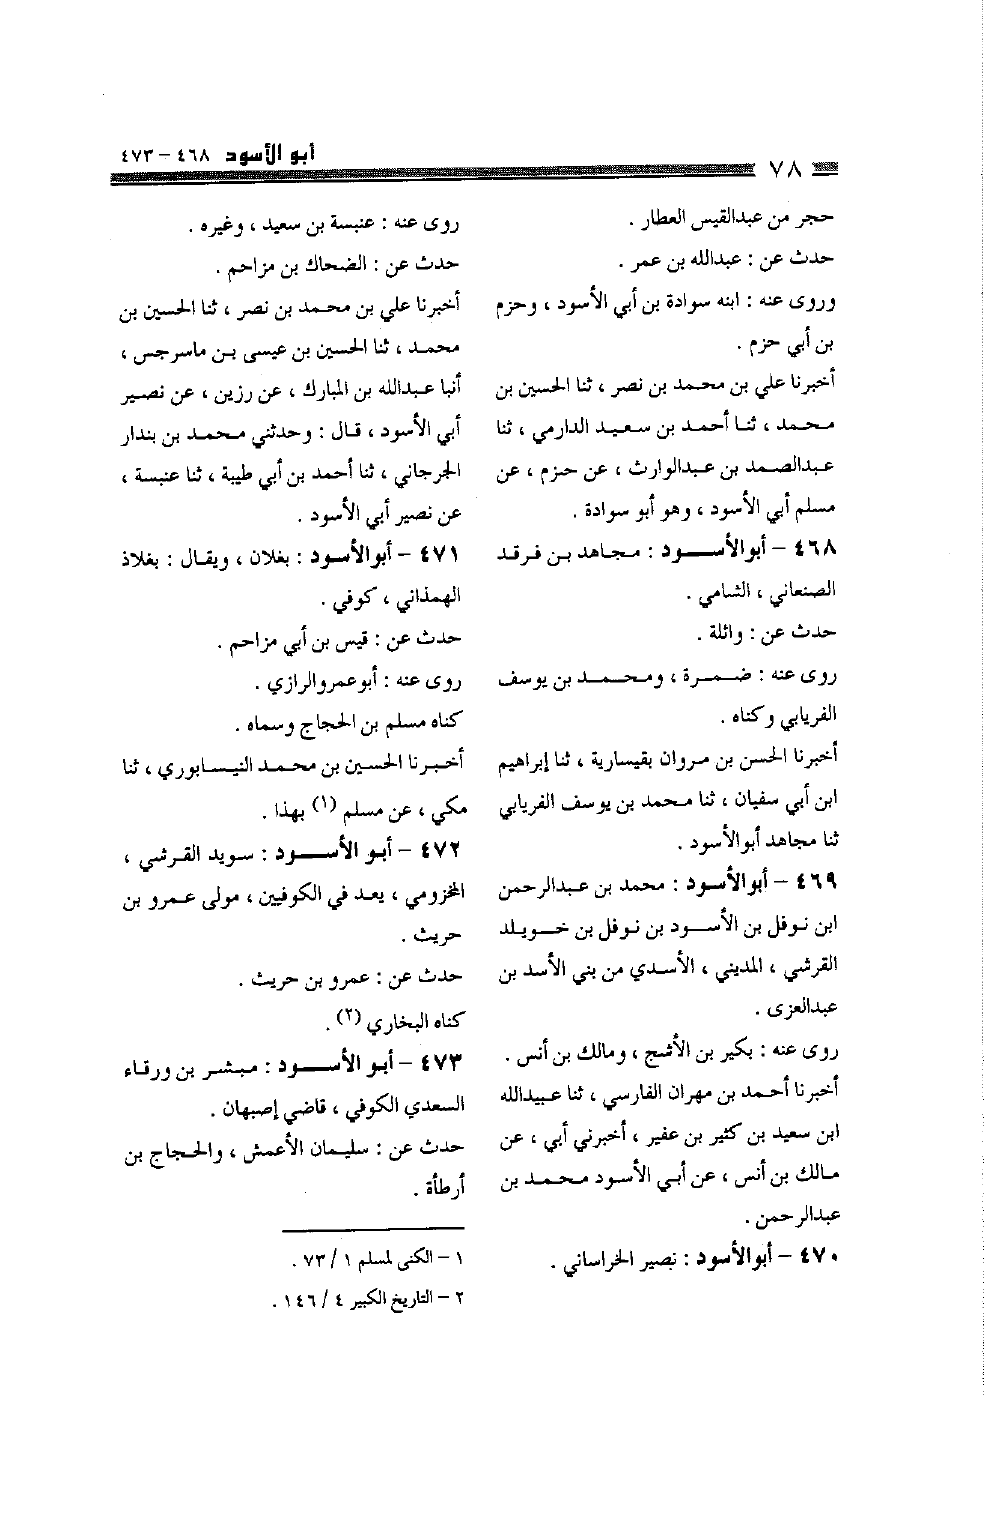 أبو الأسود ٤٦٨ – ٤٧٣
٧٨
حجر من عبدالقيس العطار .
حدث عن : عبدالله بن عمر .
وروى عنه : ابنه سوادة بن أبي الأسود ، وحزم
بن أبي حزم .
أخبرنا علي بن محمد بن نصر ، ثنا الحسين بن
محمد ، ثنا أحمد بن سعيد الدارمي ، ثنا
عبدالصمد بن عبدالوارث ، عن حزم ، عن
مسلم أبي الأسود ، وهو أبو سوادة .
٤٦٨ – أبوالأسود : مجاهد بن فرقد
الصنعاني ، الشامي .
حدث عن : واثلة .
روى عنه : ضمرة ، ومحمد بن يوسف
الفريابي وكناه .
أخبرنا الحسن بن مروان بقيسارية ، ثنا إبراهيم
ابن أبي سفيان ، ثنا محمد بن يوسف الفريابي
ثنا مجاهد أبوالأسود .
٤٦٩ – أبوالأسود : محمد بن عبدالرحمن
ابن نوفل بن الأسود بن نوفل بن خويلد
القرشي ، المديني ، الأسدي من بني الأسد بن
عبدالعزى .
روى عنه : بكير بن الأشج ، ومالك بن أنس .
أخبرنا أحمد بن مهران الفارسي ، ثنا عبيدالله
ابن سعيد بن كثير بن عفير ، أخبرني أبي ، عن
مالك بن أنس ، عن أبي الأسود محمد بن
عبدالرحمن .
٤٧٠ – أبوالأسود : نصير الخراساني .
روى عنه : عنبسة بن سعيد ، وغيره .
حدث عن : الضحاك بن مزاحم .
أخبرنا علي بن محمد بن نصر ، ثنا الحسين بن
محمد ، ثنا الحسين بن عيسى بن ماسرجس ،
أنبا عبدالله بن المبارك ، عن رزين ، عن نصير
أبي الأسود ، قال : وحدثني محمد بن بندار
الجرجاني ، ثنا أحمد بن أبي طيبة ، ثنا عنبسة ،
عن نصير أبي الأسود .
٤٧١ – أبوالأسود : بغلان ، ويقال : بغلاذ
الهمذاني ، كوفي .
حدث عن : قيس بن أبي مزاحم .
روى عنه : أبوعمروالرازي .
كناه مسلم بن الحجاج وسماه .
أخبرنا الحسين بن محمد النيسابوري ، ثنا
مكي ، عن مسلم (١) بهذا .
٤٧٢ – أبو الأسود : سويد القرشي ،
المخزومي ، يعد في الكوفيين ، مولى عمرو بن
حريث .
حدث عن : عمرو بن حريث .
كناه البخاري (٢) .
٤٧٣ – أبو الأسود : مبشر بن ورقاء
السعدي الكوفي ، قاضي إصبهان .
حدث عن : سليمان الأعمش ، والحجاج بن
أرطأة .
١ – الكنى لمسلم ١ / ٧٣ .
٢ – التاريخ الكبير ٤ / ١٤٦ .